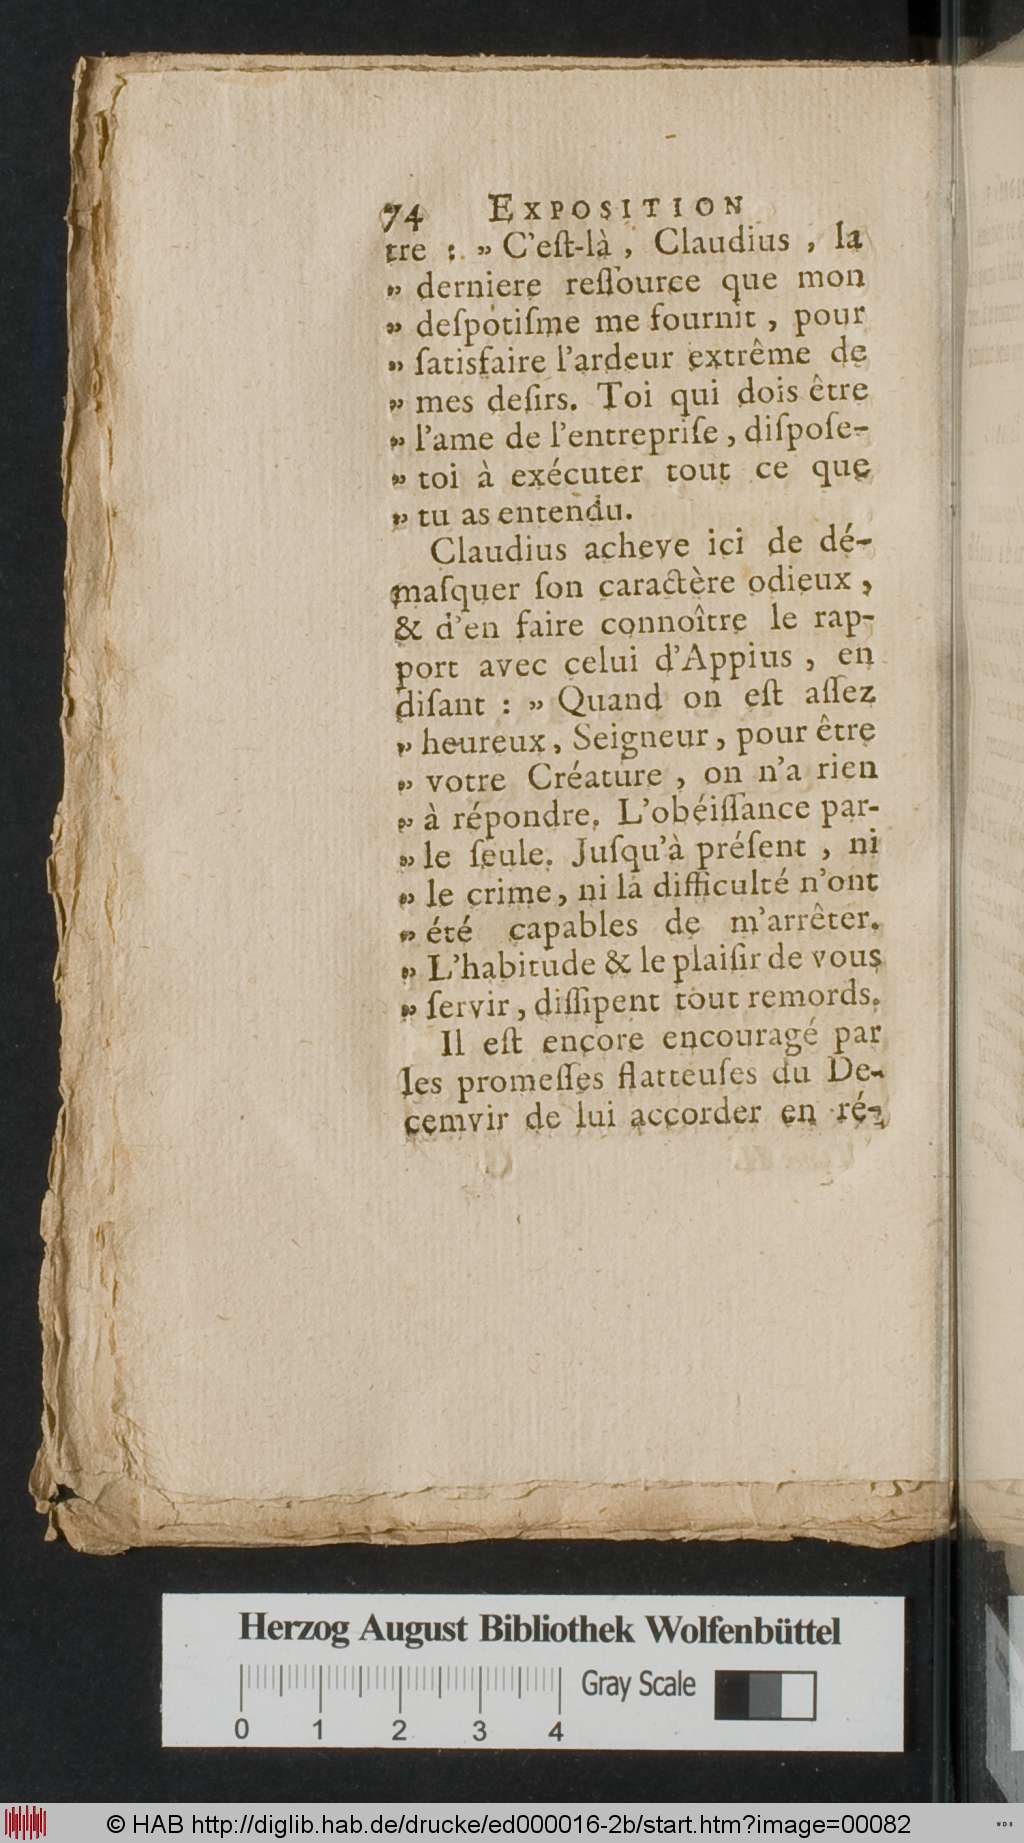 74 EXPOSITION
tre : ” C'eſt-là , Claudius , la
” derniere reſſource que mon
” deſpotiſme me fournit , pour
” ſatisfaire l'ardeur extrême de
” mes deſirs. Toi qui dois être
” l'ame de l'entrepriſe , diſpoſe-
” toi à exécuter tout ce que
” tu as entendu.
Claudius acheve ici de dé-
maſquer ſon caractère odieux ,
& d'en faire connoître le rap-
port avec celui d'Appius , en
diſant : ” Quand on eſt aſſez
” heureux , Seigneur , pour être
” votre Créature , on n'a rien
” à répondre. L'obéiſſance par-
” le ſeule. Juſqu'à préſent , ni
” le crime , ni la difficulté n'ont
” été capables de m'arrêter.
” L'habitude & le plaiſir de vous
” ſervir , diſſipent tout remords.
Il eſt encore encouragé par
les promeſſes flatteuſes du De-
cemvir de lui accorder en ré-
Herzog August Bibliothek Wolfenbüttel
Gray Scale
0 1 2 3 4
© HAB http://diglib.hab.de/drucke/ed000016-2b/start.htm?image=00082